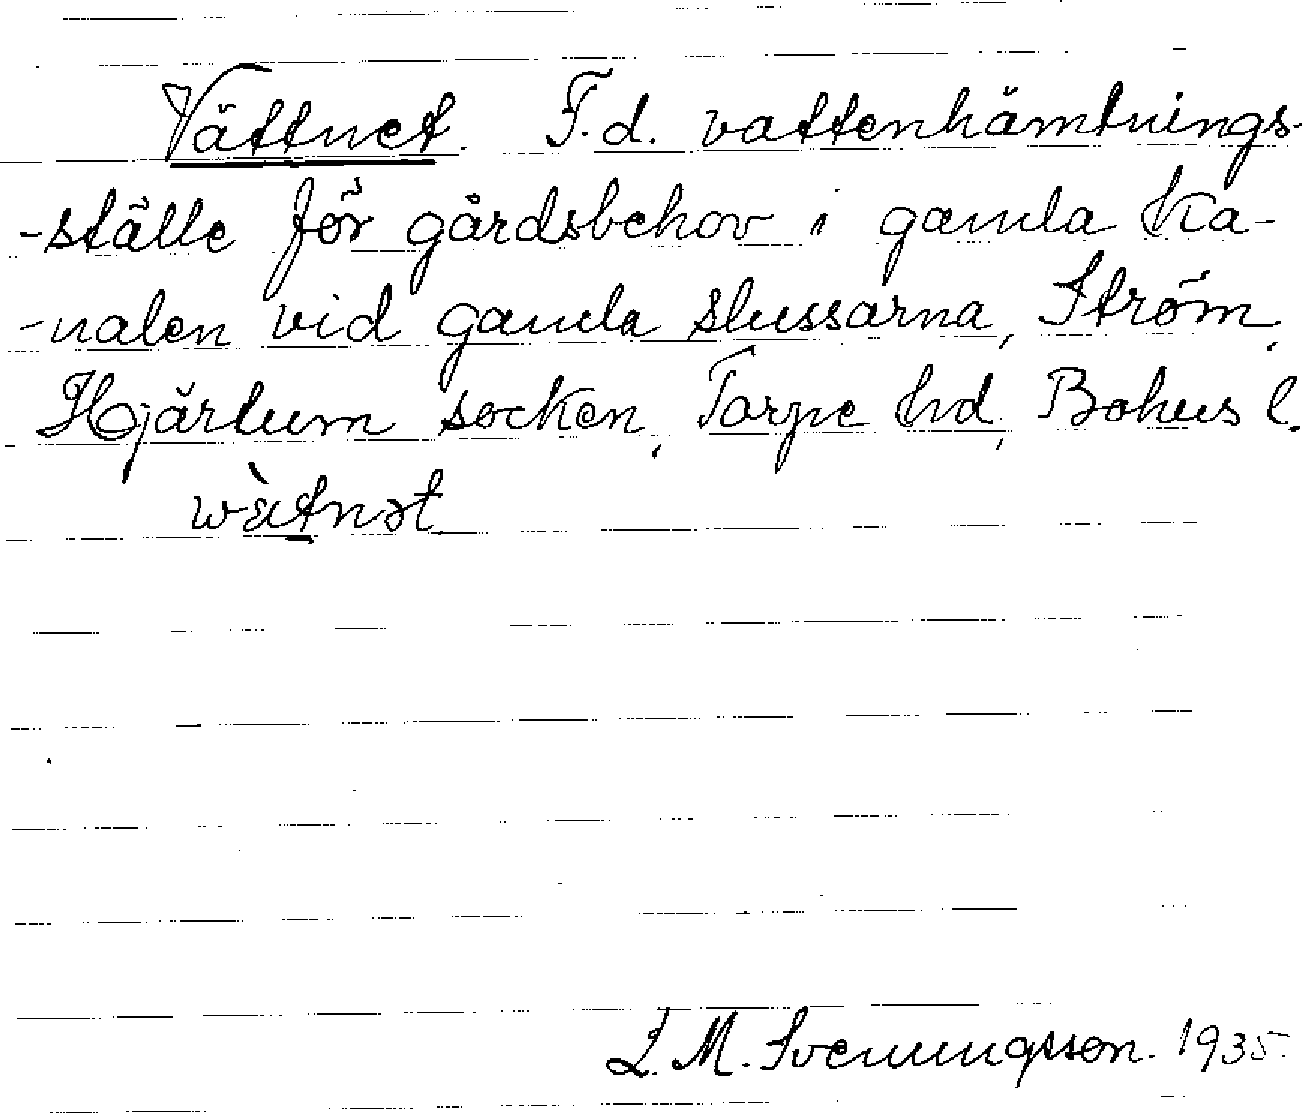 Vättnet. F.d. vattenhämtnings-
-ställe för gårdsbehov i gamla ka-
-nalen vid gamla slussarna, Ström,
Hjärtum socken, Torpe hd, Bohus l.
wàtnət
L. M. Svenungsson. 1935.